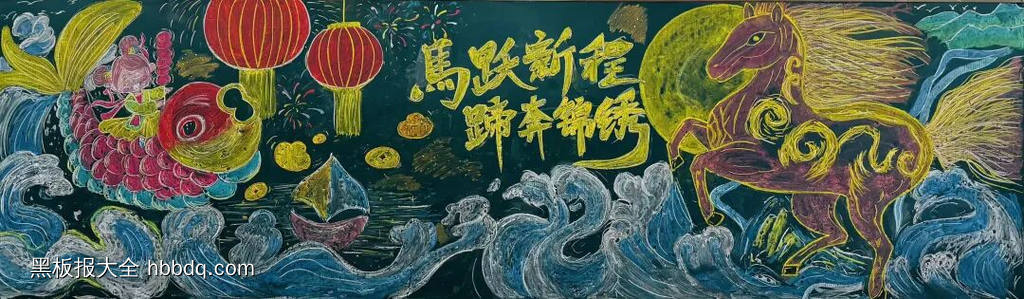 馬跃新程
蹄奔锦绣
黑板报大全 hbbdq.com